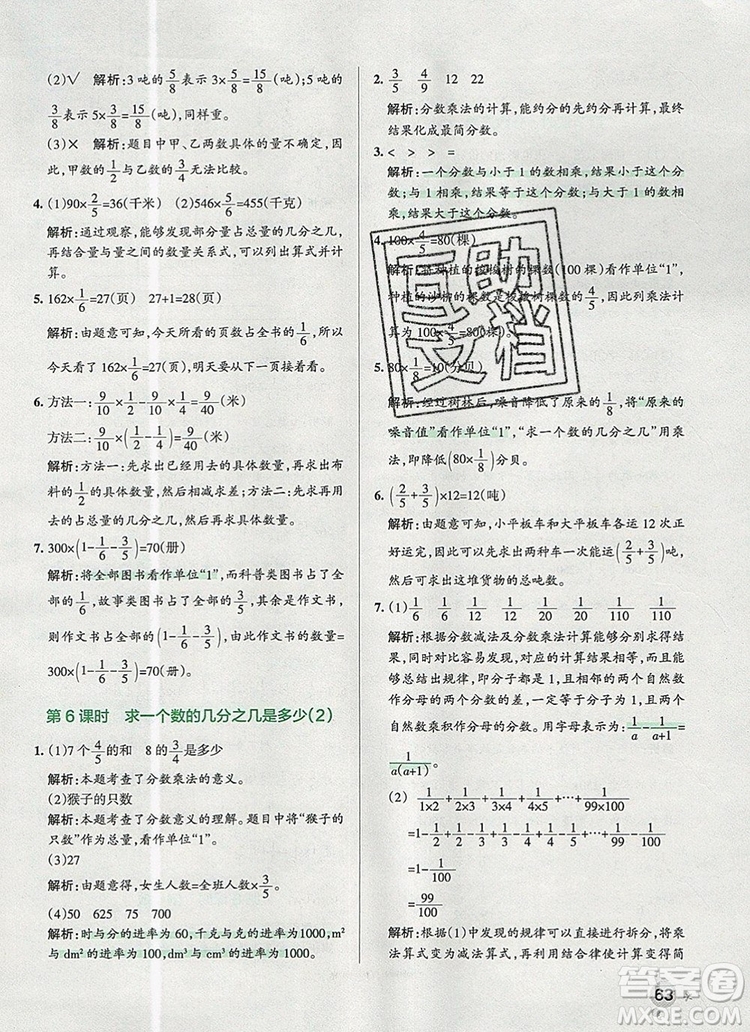 (2)√ 解析:3吨的5/8表示3×5/8=15/8(吨);5吨的
3/8表示5×3/8=15/8(吨),同样重。
(3)× 解析:题目中甲、乙两数的量不确定,因
此,甲数的1/2与乙数的3/5无法比较。
4. (1)90×2/5=36(千米) (2)546×5/6=455(千克)
解析:通过观察,能够发现部分量占总量的几分之几,
再结合量与量之间的数量关系式,可以列出算式并计
算。
5. 162×1/6=27(页) 27+1=28(页)
解析:由题意可知,今天所看的页数占全书的1/6,所
以今天看了162×1/6=27(页)。
6. 方法一:9/10-9/10×1/2-9/10×1/4=9/40(米)
方法二:9/10×(1/2-1/4)=9/40(米)
解析:方法一:先求出已经用去的具体数量,再求出布
料的1/2的具体数量,然后相减求差;方法二:先求出剩
的占总量的几分之几,再求出具体数量。
7. 300×(1-1/6-3/5)=70(册)
解析:将全部图书看作单位“1”,而科普类图书占全部
图书的1/6,故事类图书占全部图书的3/5,余下是作文书,
则作文书占全部图书的(1-1/6-3/5),作文书的数量=
300×(1-1/6-3/5)=70(册)。
第6课时 求一个数的几分之几是多少(2)
1. (1)7个4/5的和 8的3/4是多少
解析:本题考查了分数乘法的意义。
(2)猴子的只数
解析:本题考查了分数意义的理解。题目中将“猴子的
只数”作为总量,看作单位“1”。
(3)27
解析:由题意得,女生人数=全班人数×3/5。
(4)50 625 75 700
解析:时与分的进率为60,千克与克的进率为1000,m²
与dm²的进率为100,dm³与cm³的进率为1000。
2. 3/5 4/9 12 22
解析:分数乘法的计算,能约分的先约分再计算,最终
结果化成最简分数。
3. < > > =
解析:一个分数与小于1的数相乘,结果小于这个分
数;与1相乘,结果等于这个分数;与大于1的数相
乘,结果大于这个分数。
4. 100×4/5=80(棵)
解析:将种植的梭梭树的棵数(100棵)看作单位“1”,
种植的沙柳的棵数是梭梭树棵数的4/5,因此列乘法计
算为100×4/5=800棵)。
5. 80×1/8=10(分贝)
解析:经过树林后,噪音降低了原来的1/8,将“原来的
噪音值”看作单位“1”,“求一个数的几分之几”用乘
法,即降低(80×1/8)分贝。
6. (2/5+3/5)×12=12(吨)
解析:由题意可知,小平板车和大平板车各运12次正
好运完,因此可以先求出两种车一次共运(2/5+3/5)吨,
再求出这堆货物的总吨数。
7. (1)1/6 1/6 1/12 1/12 1/20 1/20 1/110 1/110
解析:根据分数减法及分数乘法计算能够分别求得结
果,对比容易发现,对应的计算结果相等,因此,能够
总结出规律:以相邻的两个自然数作分母且分子都是
1的两个分数相减,结果等于分子为1,相邻两个自然
数乘积作分母的分数。用字母表示为:1/a-1/(a+1)=
1/(a(a+1))。
(2) 1/(1×2)+1/(2×3)+1/(3×4)+1/(4×5)+…+1/(99×100)
=1-1/2+1/2-1/3+1/3-1/4+1/4-1/5+…+1/99-1/100
=1-1/100
=99/100
解析:根据(1)中发现的规律可以直接进行拆分,将乘
法算式变为减法算式,再利用结合律使计算变得简
63
互助
文档
答案圈
MXQE.COM